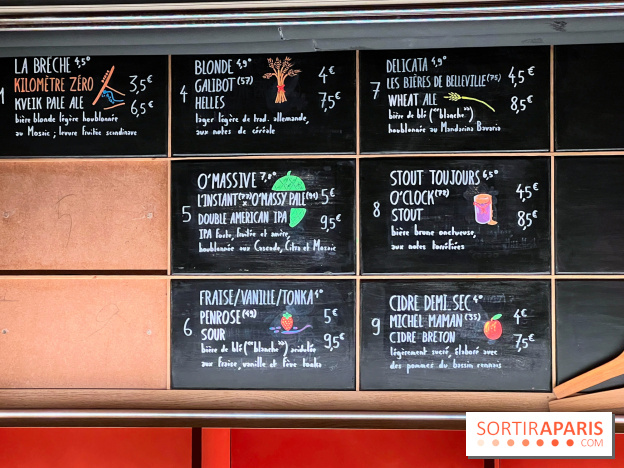 1
LA BRÈCHE 4,5°
KILOMÈTRE ZÉRO
KVEIK PALE ALE
3,5€
6,5€
bière blonde légère houblonnée
au Mosaic ; levure fruitée scandinave
4
BLONDE 4,9°
GALIBOT (57)
HELLES
4€
7,5€
lager légère de trad. allemande,
aux notes de céréale
7
DELICATA 4,9°
LES BIÈRES DE BELLEVILLE (75)
WHEAT ALE
4,5€
8,5€
bière de blé ("blanche")
houblonnée au Mandarina Bavaria
5
O'MASSIVE 7,8°
L'INSTANT x O'MASSY PALE (91)
DOUBLE AMERICAN IPA
5€
9,5€
IPA forte, fruitée et amère,
houblonnée aux Cascade, Citra et Mosaic
8
STOUT TOUJOURS 6,5°
O'CLOCK (78)
STOUT
4,5€
8,5€
bière brune onctueuse,
aux notes torréfiées
6
FRAISE/VANILLE/TONKA 6°
PENROSE (49)
SOUR
5€
9,5€
bière de blé ("blanche") acidulée
aux fraise, vanille et fève tonka
9
CIDRE DEMI-SEC 4°
MICHEL MAMAN (35)
CIDRE BRETON
4€
7,5€
légèrement sucré, élaboré avec
des pommes du bassin rennais
SORTIRAPARIS
.COM